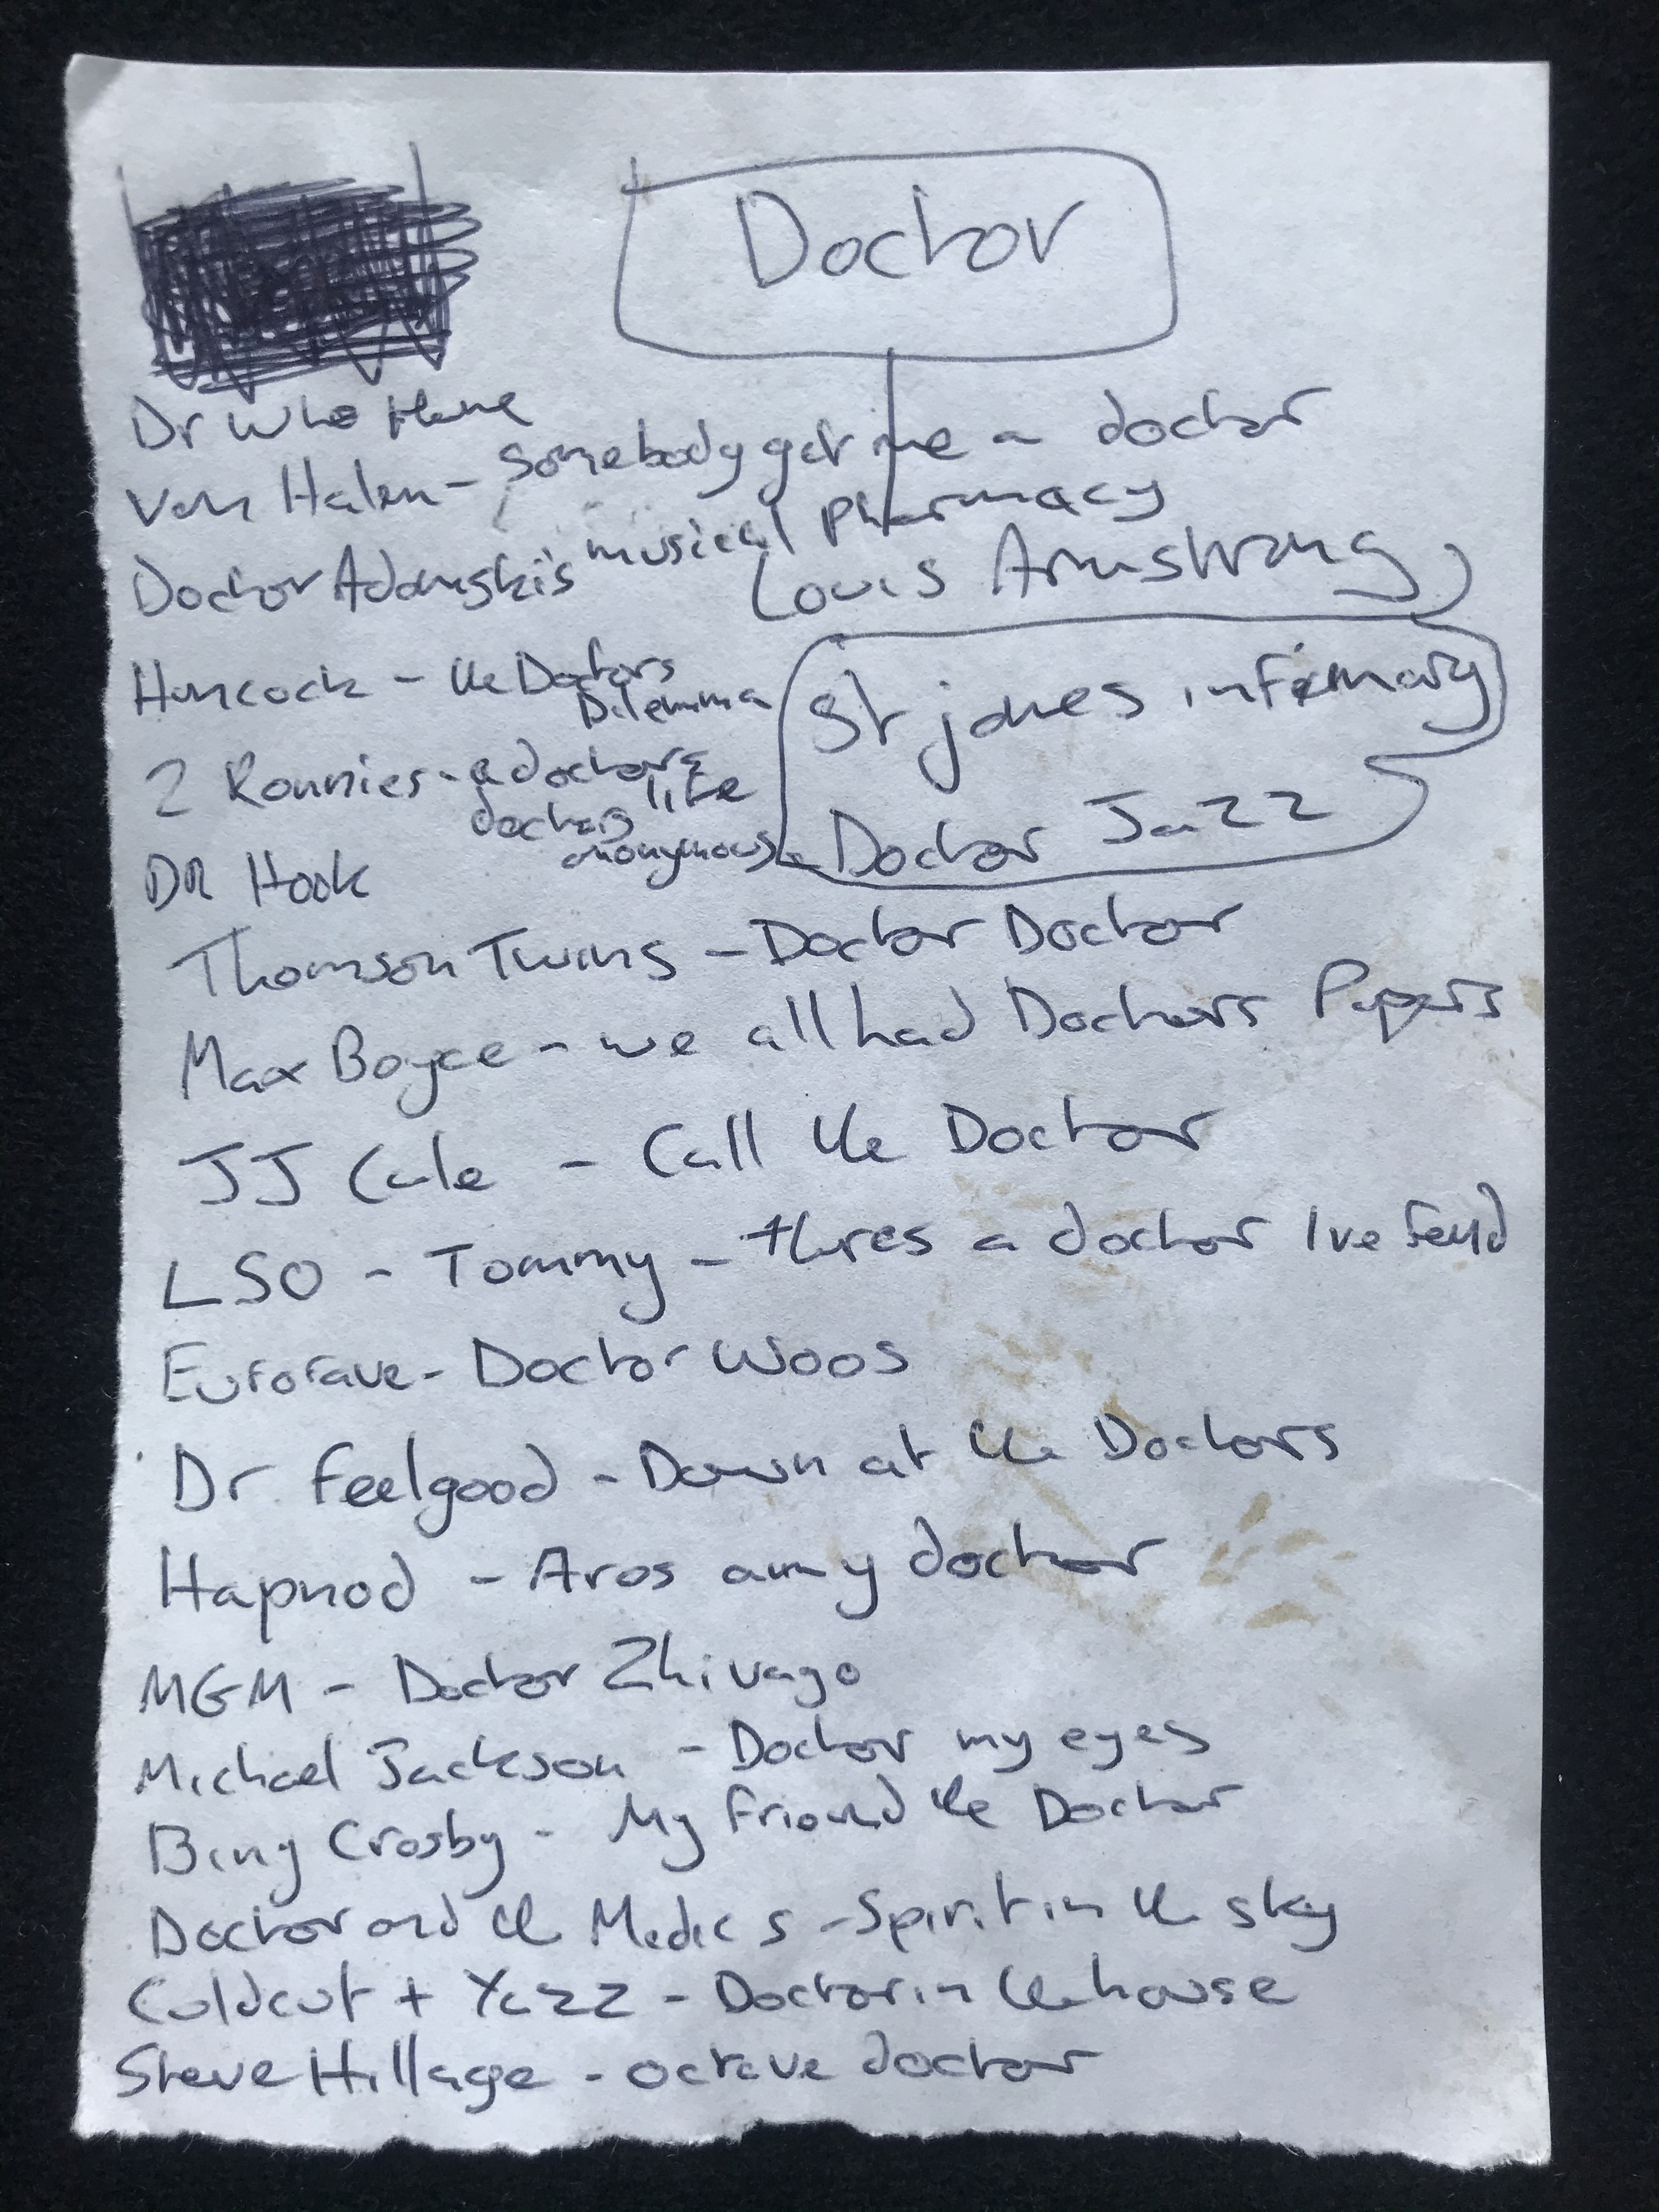 Doctor
Dr Who theme
Van Halen - Somebody get me a doctor
Doctor Adamski's musical pharmacy
Louis Armstrong
Hancock - the Doctors
Dilemma
St james infirmary
2 Ronnies - a doctors
life
doctors
anonymous
Doctor Jazz
DR Hook
Thomson Twins - Doctor Doctor
Max Boyce - we all had Doctors Papers
JJ Cale - Call the Doctor
LSO - Tommy - theres a doctor Ive found
Eurorave - Doctor Woos
Dr. Feelgood - Down at the Doctors
Hapnod - Aros am y doctor
MGM - Doctor Zhivago
Michael Jackson - Doctor my eyes
Bing Crosby - My Friend the Doctor
Doctor and the Medics - Spirit in the sky
Coldcut + Yazz - Doctorin the house
Steve Hillage - octave doctor